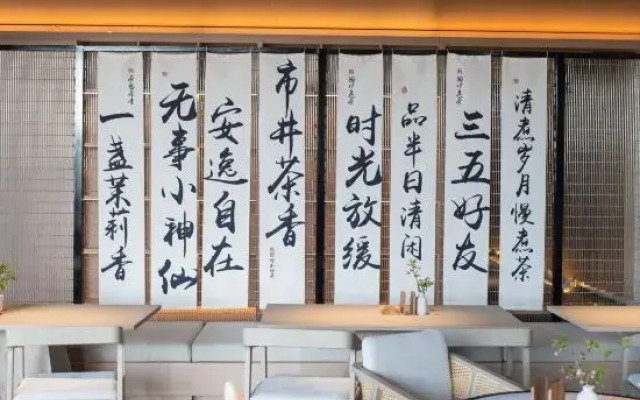 清煮岁月慢煮茶
三五好友
品半日清闲
时光放缓
市井茶香
安逸自在
无事小神仙
一盏茉莉香